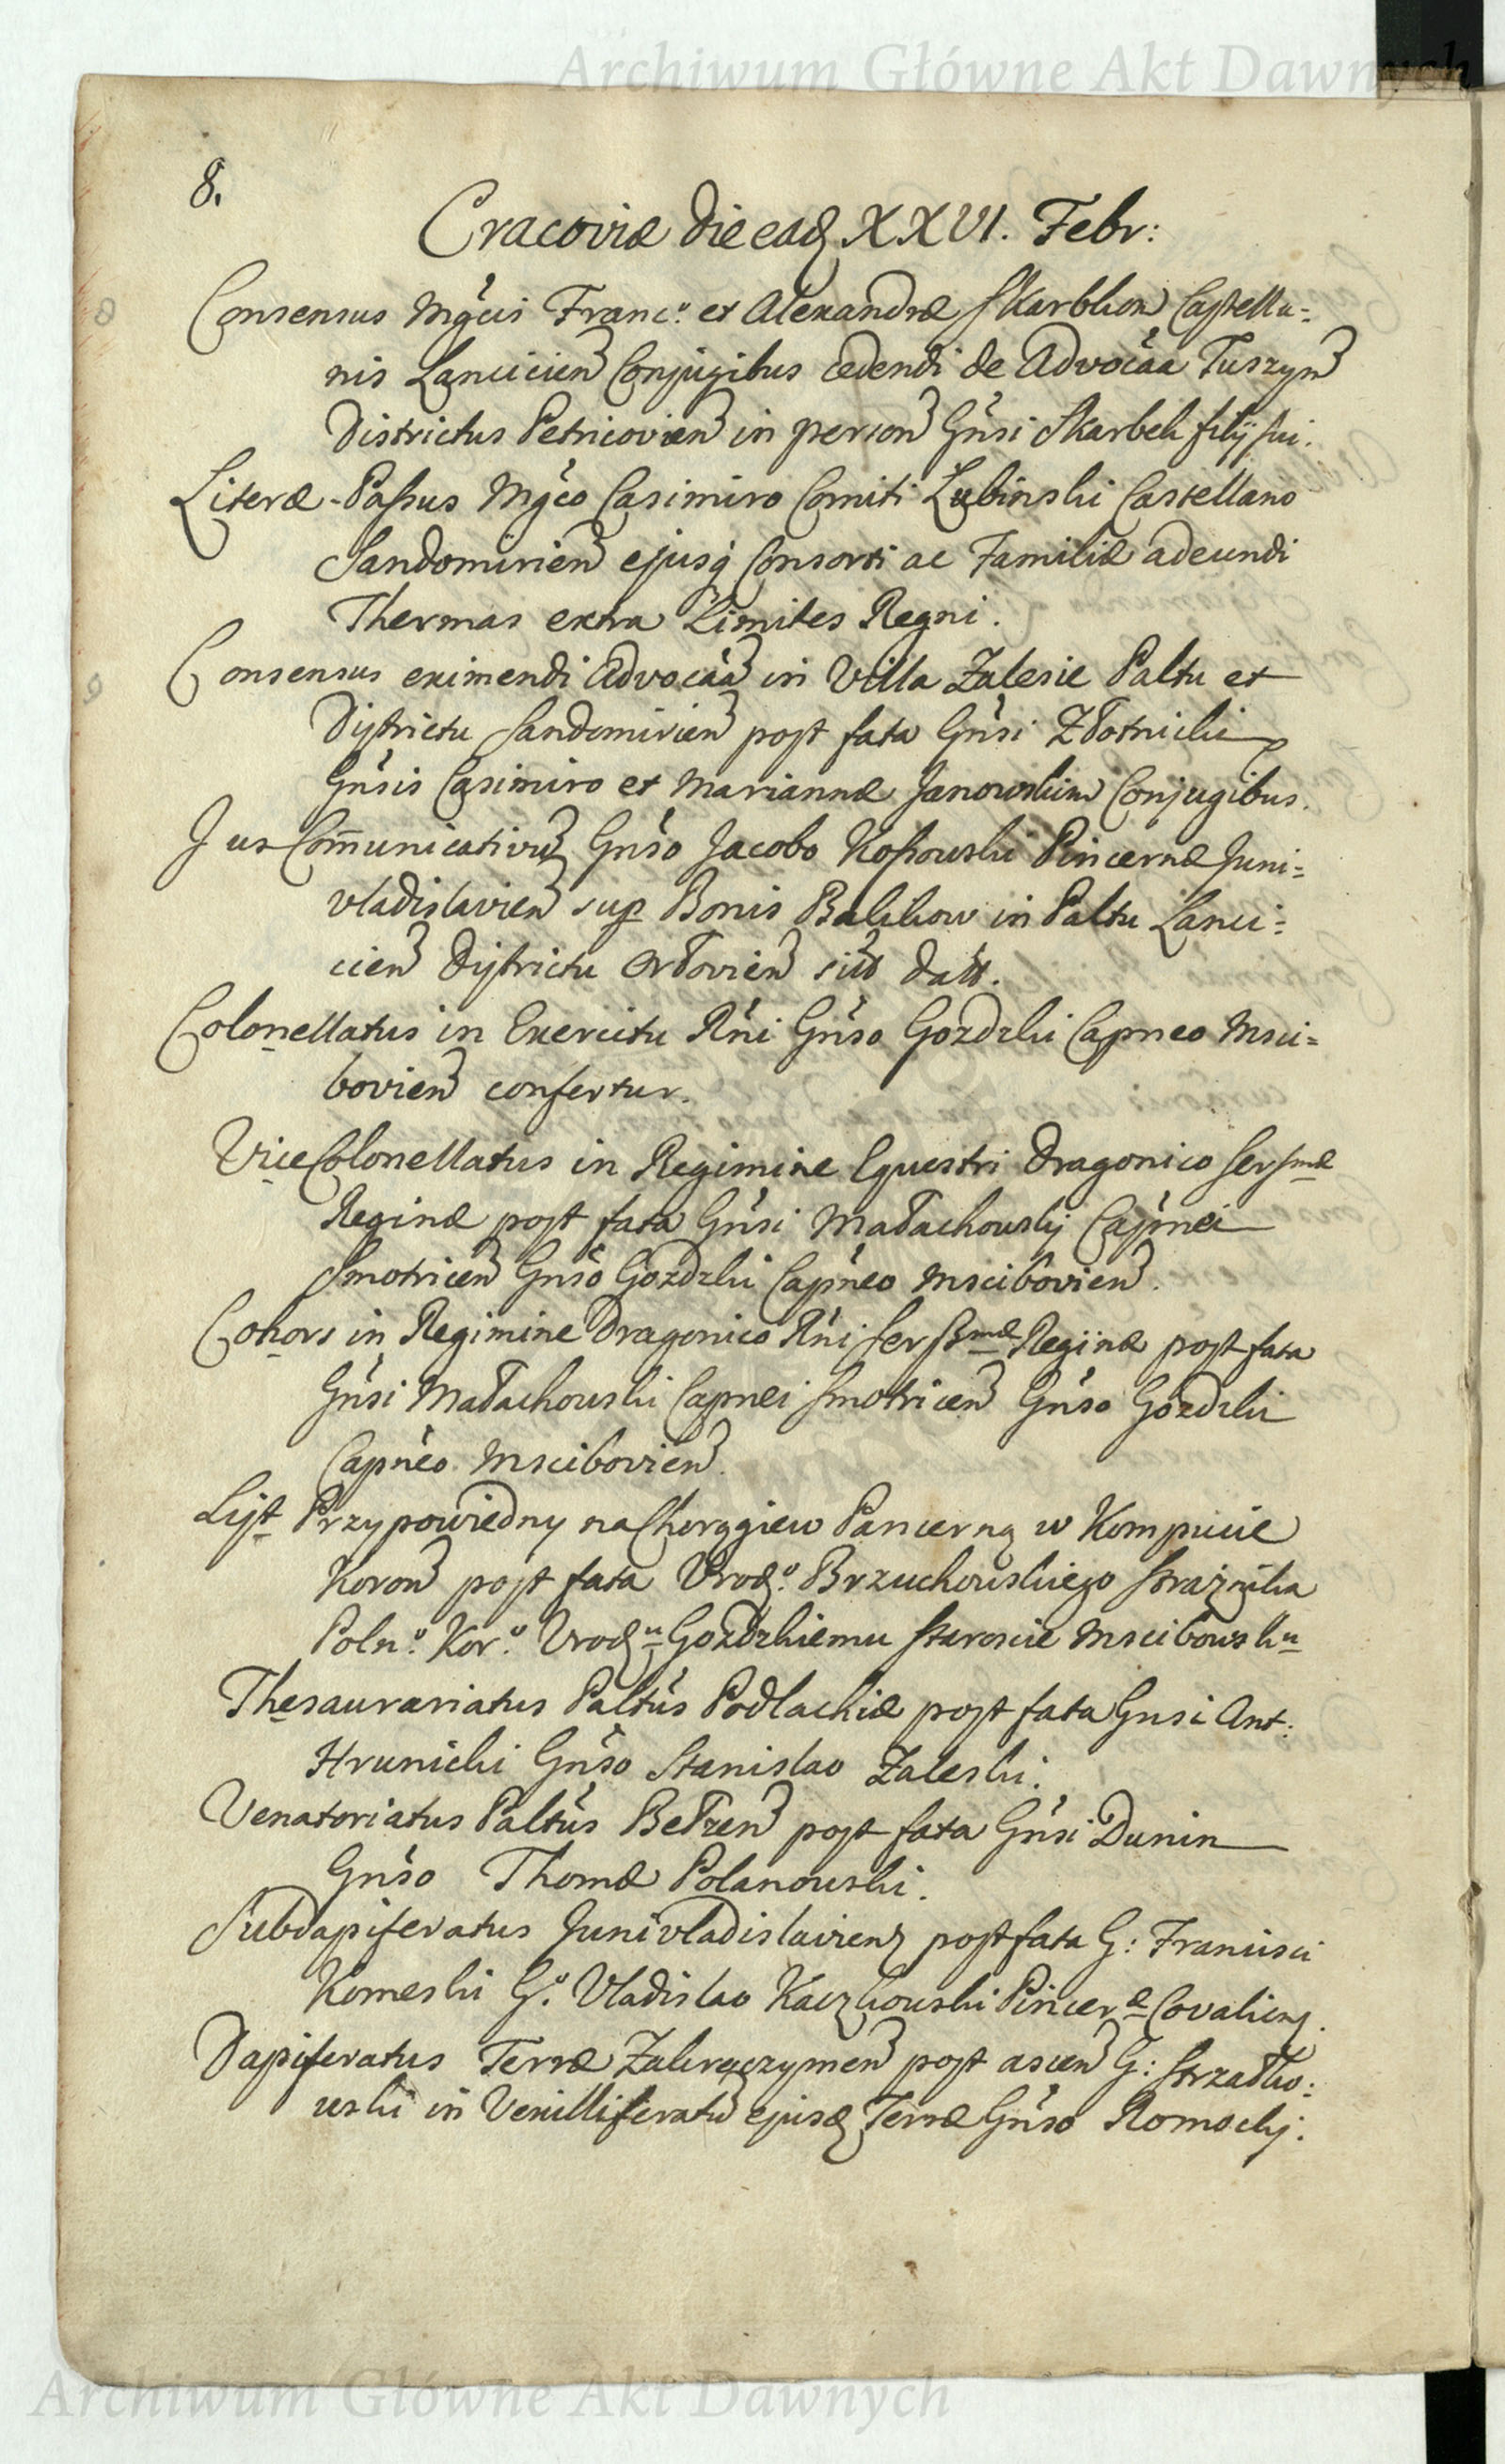 Archiwum Główne Akt Dawnych
8.
Cracoviæ die eadȩ XXVI. Febr:
Consensus Mgcis Franc.o et Alexandræ Skarbkom Castella=
nis Lanciciens Conjugibus cedendi de Advocãa Tuszyn
Districtus Petricovien in person Gnsi Skarbek filij sui.
Literæ Passus Mgco Casimiro Comiti Łubinski Castellano
Sandomirien ejusq Consorti ac Familiæ adeundi
Thermas extra Limites Regni.
Consensus eximendi Advocãa in Villa Zalesie Paltu et
Districtu Sandomirien post fata Gnsi Złotnicki
Gnsis Casimiro et Mariannæ Janowskim Conjugibus.
Jus Com̃unicativũ Gnso Jacobo Kossowski Pincernæ Juni=
vladislavien sup Bonis Bałkow in Paltu Lanci=
cien Districtu Orłovien sitt datt.
Colonellatus in Exercitu Rni Gnso Gozdzki Capneo Msci=
bovien confertur.
Vice Colonellatus in Regimine Equestri Dragonico Sersmæ
Reginæ post fata Gnsi Małachowskj Capnei
Smotricen Gnso Gozdzki Capneo Mscibovien.
Cohors in Regimine Dragonico Rni Serssmæ Reginæ post fata
Gnsi Małachowski Capnei Smotricen Gnso Gozdzki
Capneo Mscibovien.
List Przypowiedny na Chorągiew Pancerną w Kompucie
Koron post fata Urodz.o Brzuchowskiego Strażnika
Poln.o Kor.o Urodz.u Gozdzkiemu Staroscie Mscibowsku
Thesaurariatus Paltus Podlachiæ post fata Gnsi Ant:
Hrunicki Gnso Stanislao Zaleski.
Venatoriatus Paltus Bełzen post fata Gnsi Dunin
Gnso Thomæ Polanowski.
Subdapiferatus Junivladislavien post fata G: Francisci
Komeski G.o Vladislao Kaczkowski Pincernæ Covalien.
Dapiferatus Terræ Zakroczymen post ascen G: Strzałko=
wski in Vexilliferatũ ejusd Terræ Gnso Romockj.
Archiwum Główne Akt Dawnych